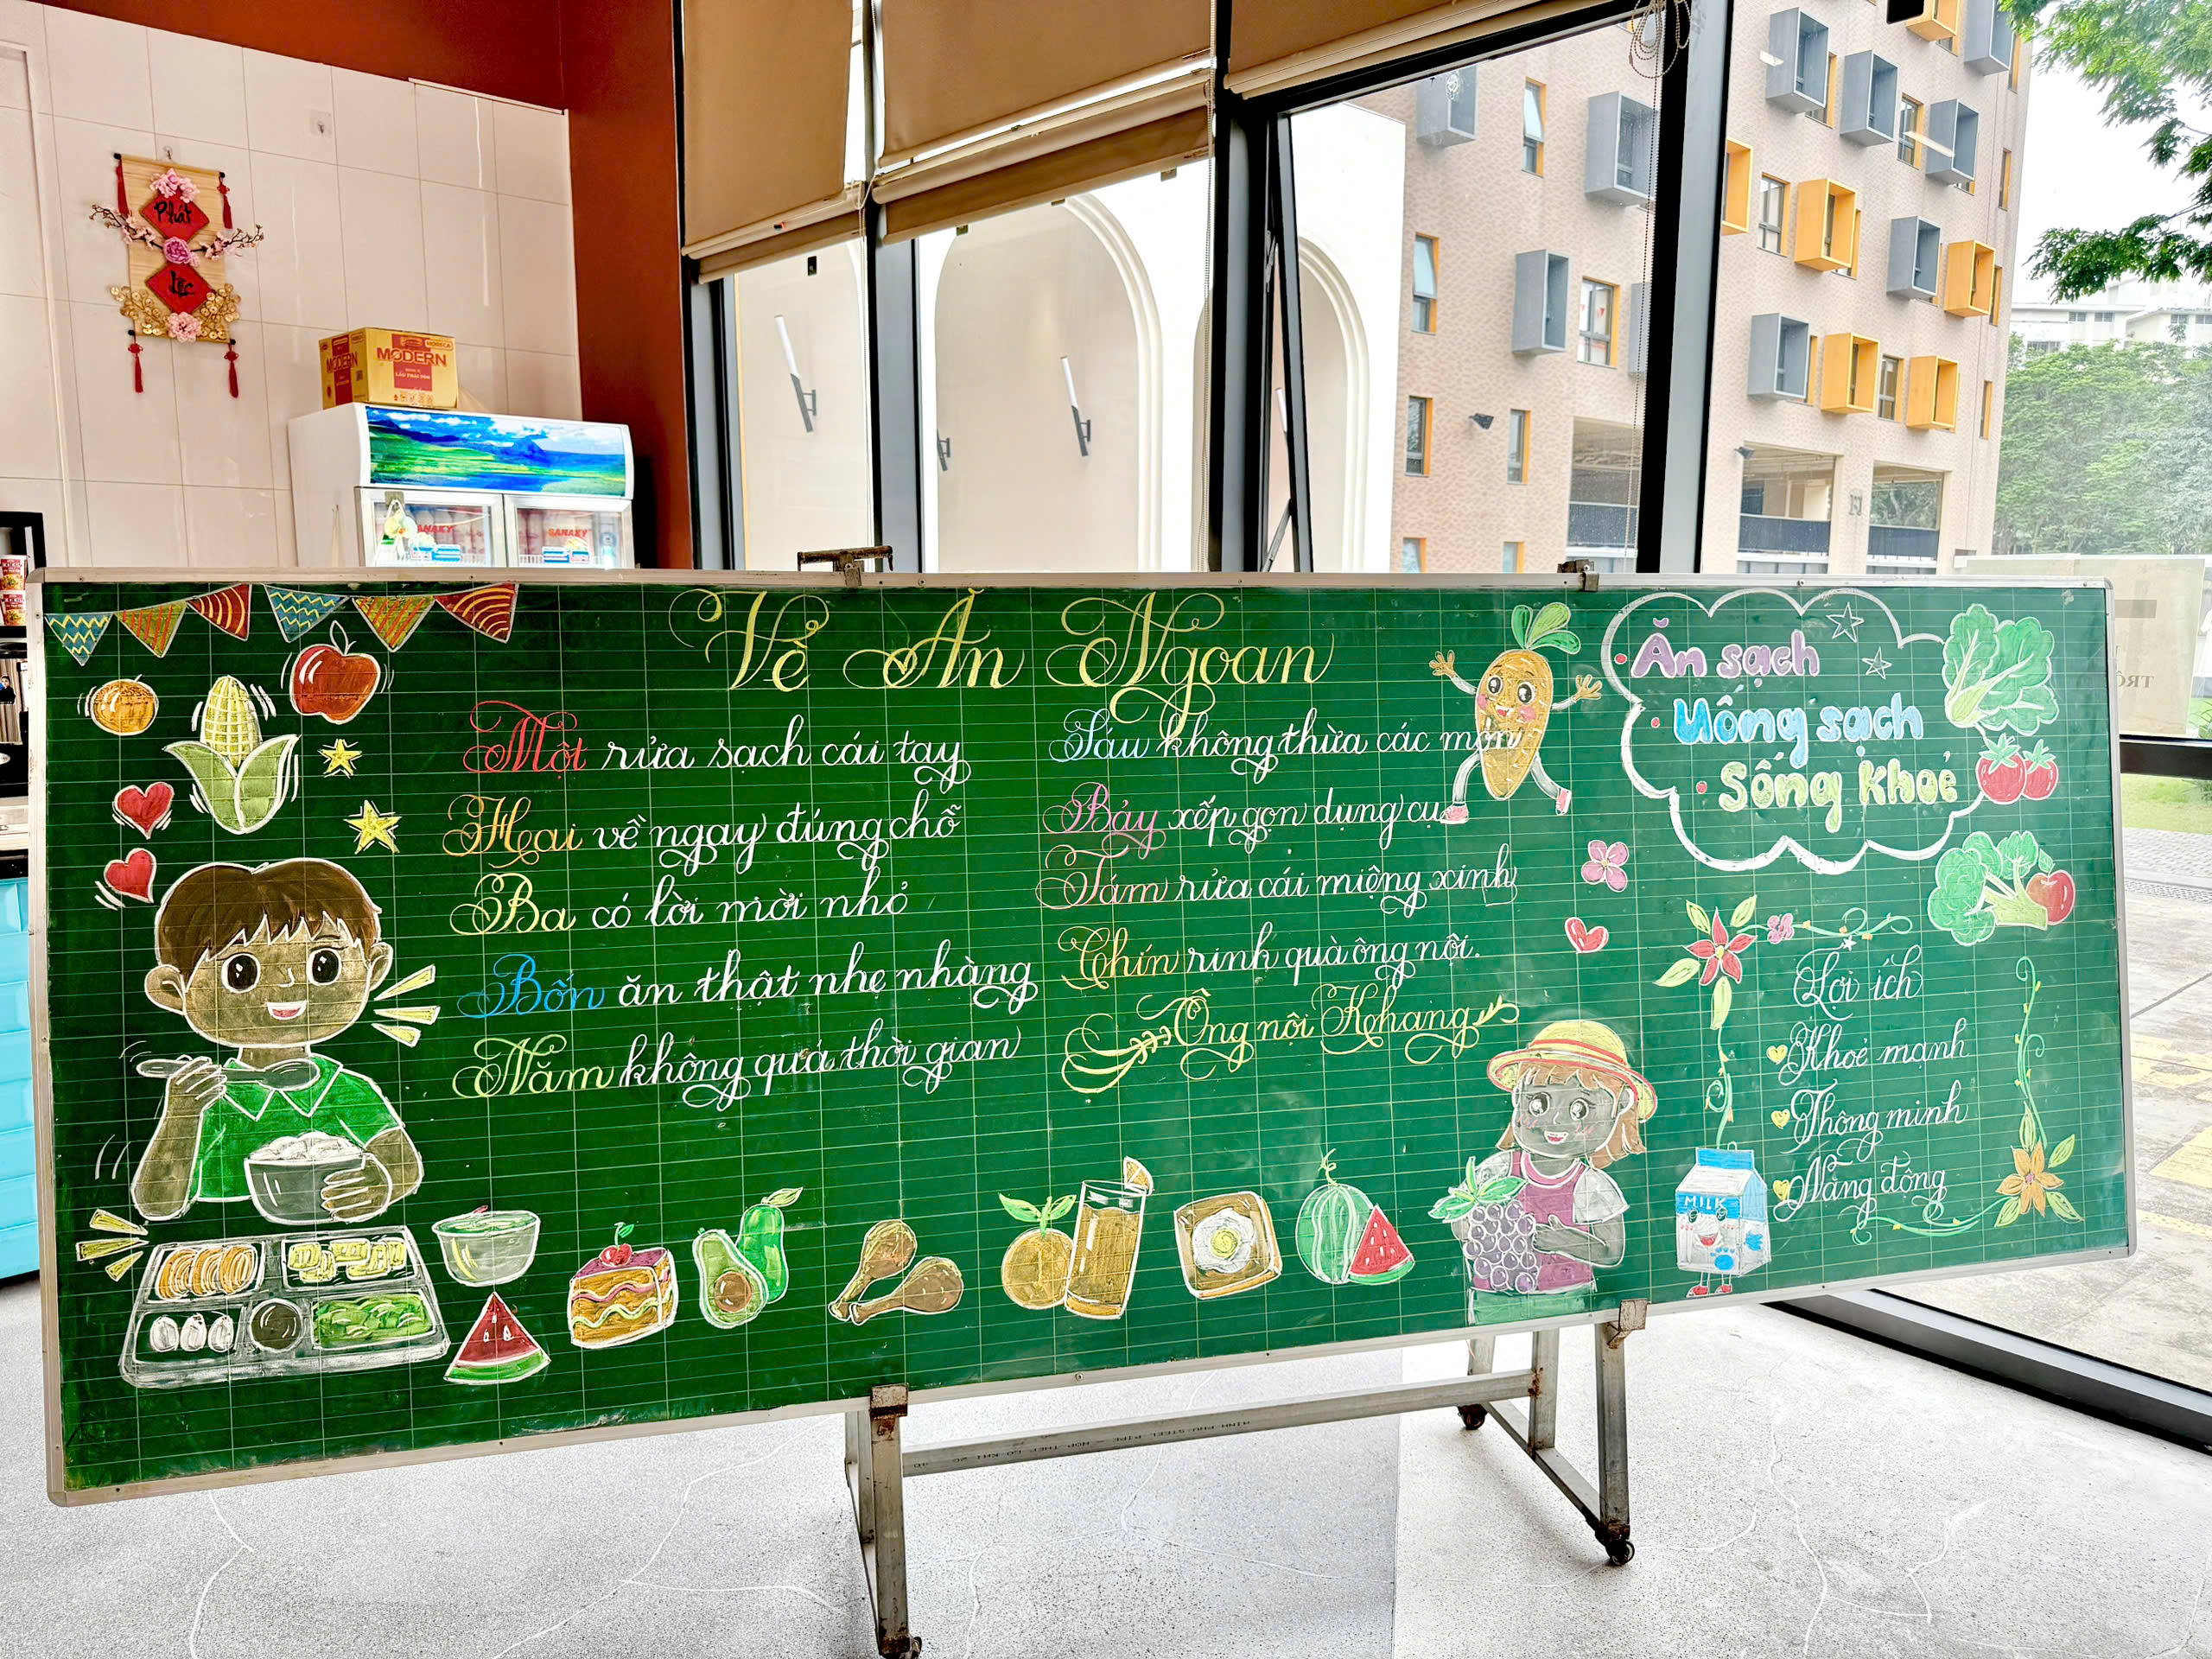 Phát
Lộc
MODERN
MODERN
LẨU THÁI TÔM
SANAKY
SANAKY
Vè Ăn Ngoan
Một rửa sạch cái tay
Hai về ngay đúng chỗ
Ba có lời mời nhỏ
Bốn ăn thật nhẹ nhàng
Năm không quá thời gian
Sáu không thừa các món
Bảy xếp gọn dụng cụ
Tám rửa cái miệng xinh
Chín rinh quà ông nội.
Ông nội Khang
Ăn sạch
Uống sạch
Sống khoẻ
Lợi ích
Khoẻ mạnh
Thông minh
Nằng động
MILK